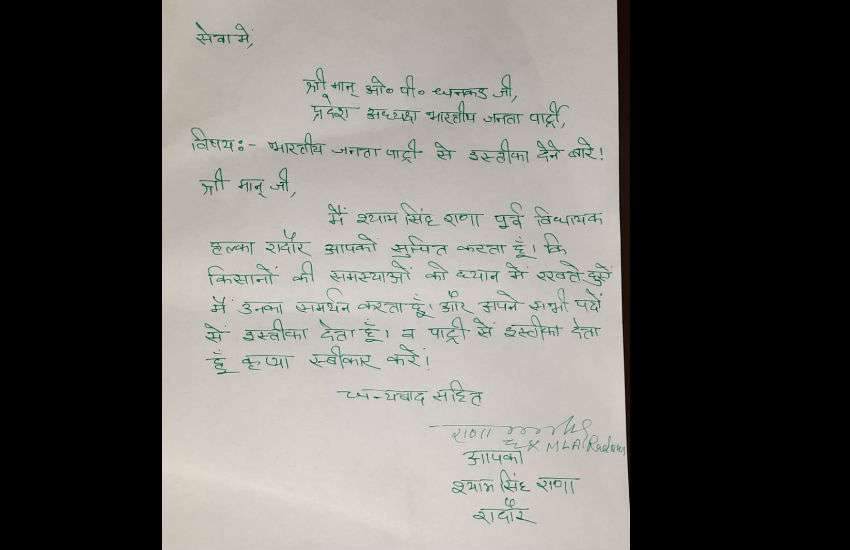 सेवा में,
श्री मान् ओ० पी० धनकड जी,
प्रदेश अध्यक्ष भारतीय जनता पार्टी,
विषय:- भारतीय जनता पार्टी से इस्तीफा देने बारे!
श्री मान् जी,
मैं श्याम सिंह राणा पूर्व विधायक
हल्का रादौर आपको सुचित करता हूँ। कि
किसानों की समस्याओं को ध्यान में रखते हुऐ
मैं उनका समर्थन करता हूँ। और अपने सभी पदों
से इस्तीफा देता हूँ। व पार्टी से इस्तीफा देता
हूँ कृप्या स्वीकार करें!
धन्यवाद सहित
राणा
Ex MLA Radaur
आपका
श्याम सिंह राणा
रादौर